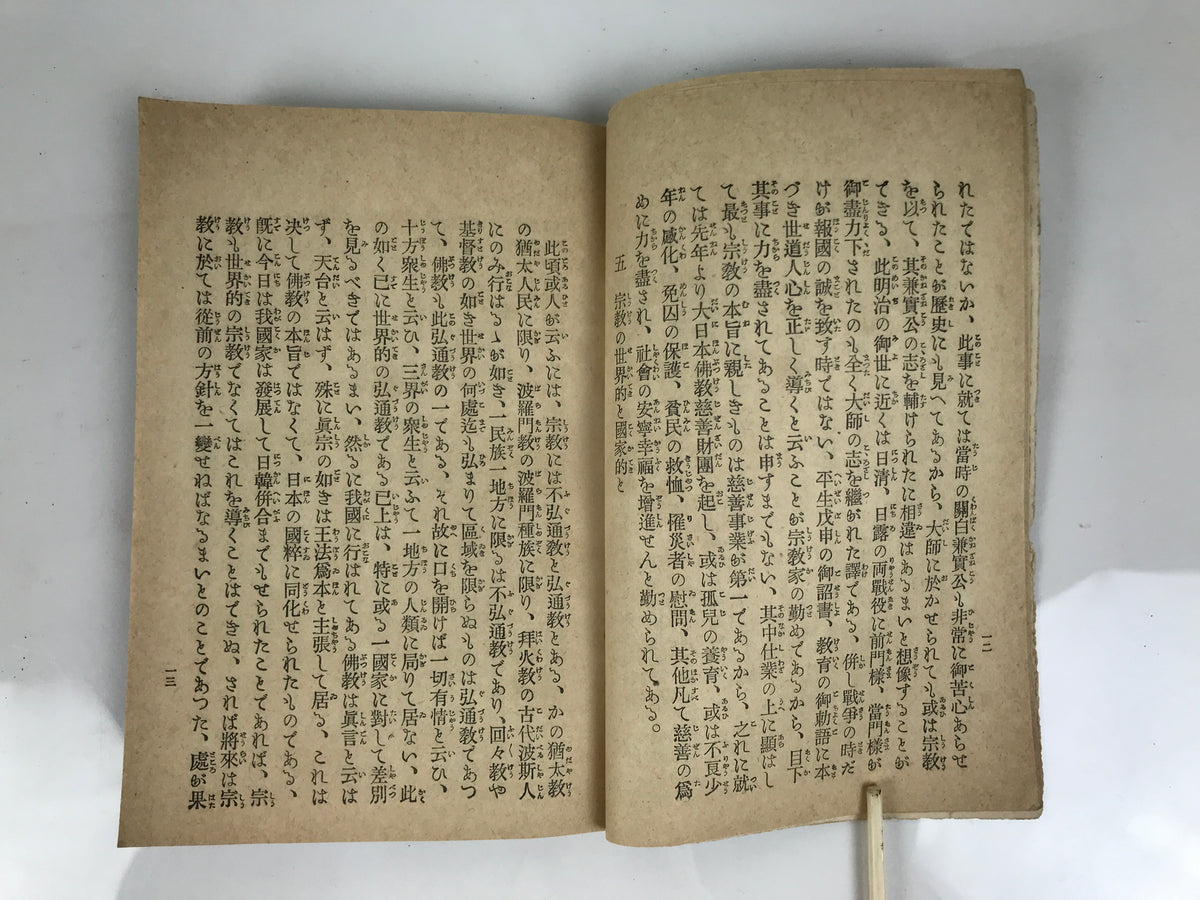 れたではないか、此事に就ては當時の關白兼實公も非常に御苦心あらせ
られたことが歷史にも見へてあるから、大師に於かせられても或は宗敎
を以て、其兼實公の志を輔けられたに相違はあるまいと想像することが
できる、此明治の御世に近くは日清、日露の両戰役に前門樣、當門樣が
御盡力下されたのも全く大師の志を繼がれた譯である、併し戰爭の時だ
けが報國の誠を致す時ではない、平生戊申の御詔書、敎育の御勅語に本
づき世道人心を正しく導くと云ふことが宗敎家の勤めであるから、目下
其事に力を盡されてあることは申すまでもない、其中仕業の上に顯はし
て最も宗敎の本旨に親しきものは慈善事業が第一であるから、之れに就
ては先年より大日本佛敎慈善財團を起し、或は孤兒の養育、或は不良少
年の感化、免囚の保護、貧民の救恤、罹災者の慰問、其他凡て慈善の爲
めに力を盡され、社會の安寧幸福を增進せんと勤められてある。
五 宗敎の世界的と國家的と
一二
此頃或人が云ふには、宗敎には不弘通敎と弘通敎とある、かの猶太敎
の猶太人民に限り、波羅門敎の波羅門種族に限り、拜火敎の古代波斯人
にのみ行はるゝが如き、一民族一地方に限るは不弘通敎であり、回々敎や
基督敎の如き世界の何處迄も弘まりて區域を限らぬものは弘通敎であつ
て、佛敎も此弘通敎の一である、それ故に口を開けば一切有情と云ひ、
十方衆生と云ひ、三界の衆生と云ふて一地方の人類に局りて居ない、此
の如く已に世界的の弘通敎である已上は、特に或る一國家に對して差別
を見るべきではあるまい、然るに我國に行はれてある佛敎は眞言と云は
ず、天台と云はず、殊に眞宗の如きは王法爲本と主張して居る、これは
決して佛敎の本旨ではなくて、日本の國粹に同化せられたものである、
既に今日は我國家は發展して日韓併合までもせられたことであれば、宗
敎も世界的の宗敎でなくてはこれを導くことはできぬ、されば將來は宗
敎に於ては從前の方針を一變せねばなるまいとのことであつた、處が果
一三